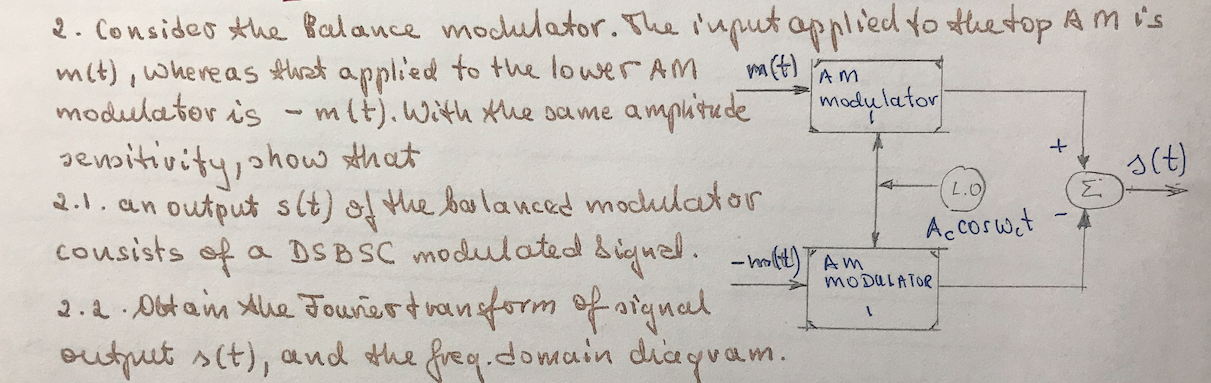 2. Consider the Balance modulator. The input applied to the top AM is
m(t), whereas that applied to the lower AM
modulator is - m(t). With the same amplitude
sensitivity, show that
2.1. an output s(t) of the balanced modulator
consists of a DSBSC modulated signal.
2.2. Obtain the Fourier transform of signal
output s(t), and the freq. domain diagram.
m(t)
AM
modulator
1
+
s(t)
L.O
Σ
Ac cos wct
-
-m(t)
AM
MODULATOR
1